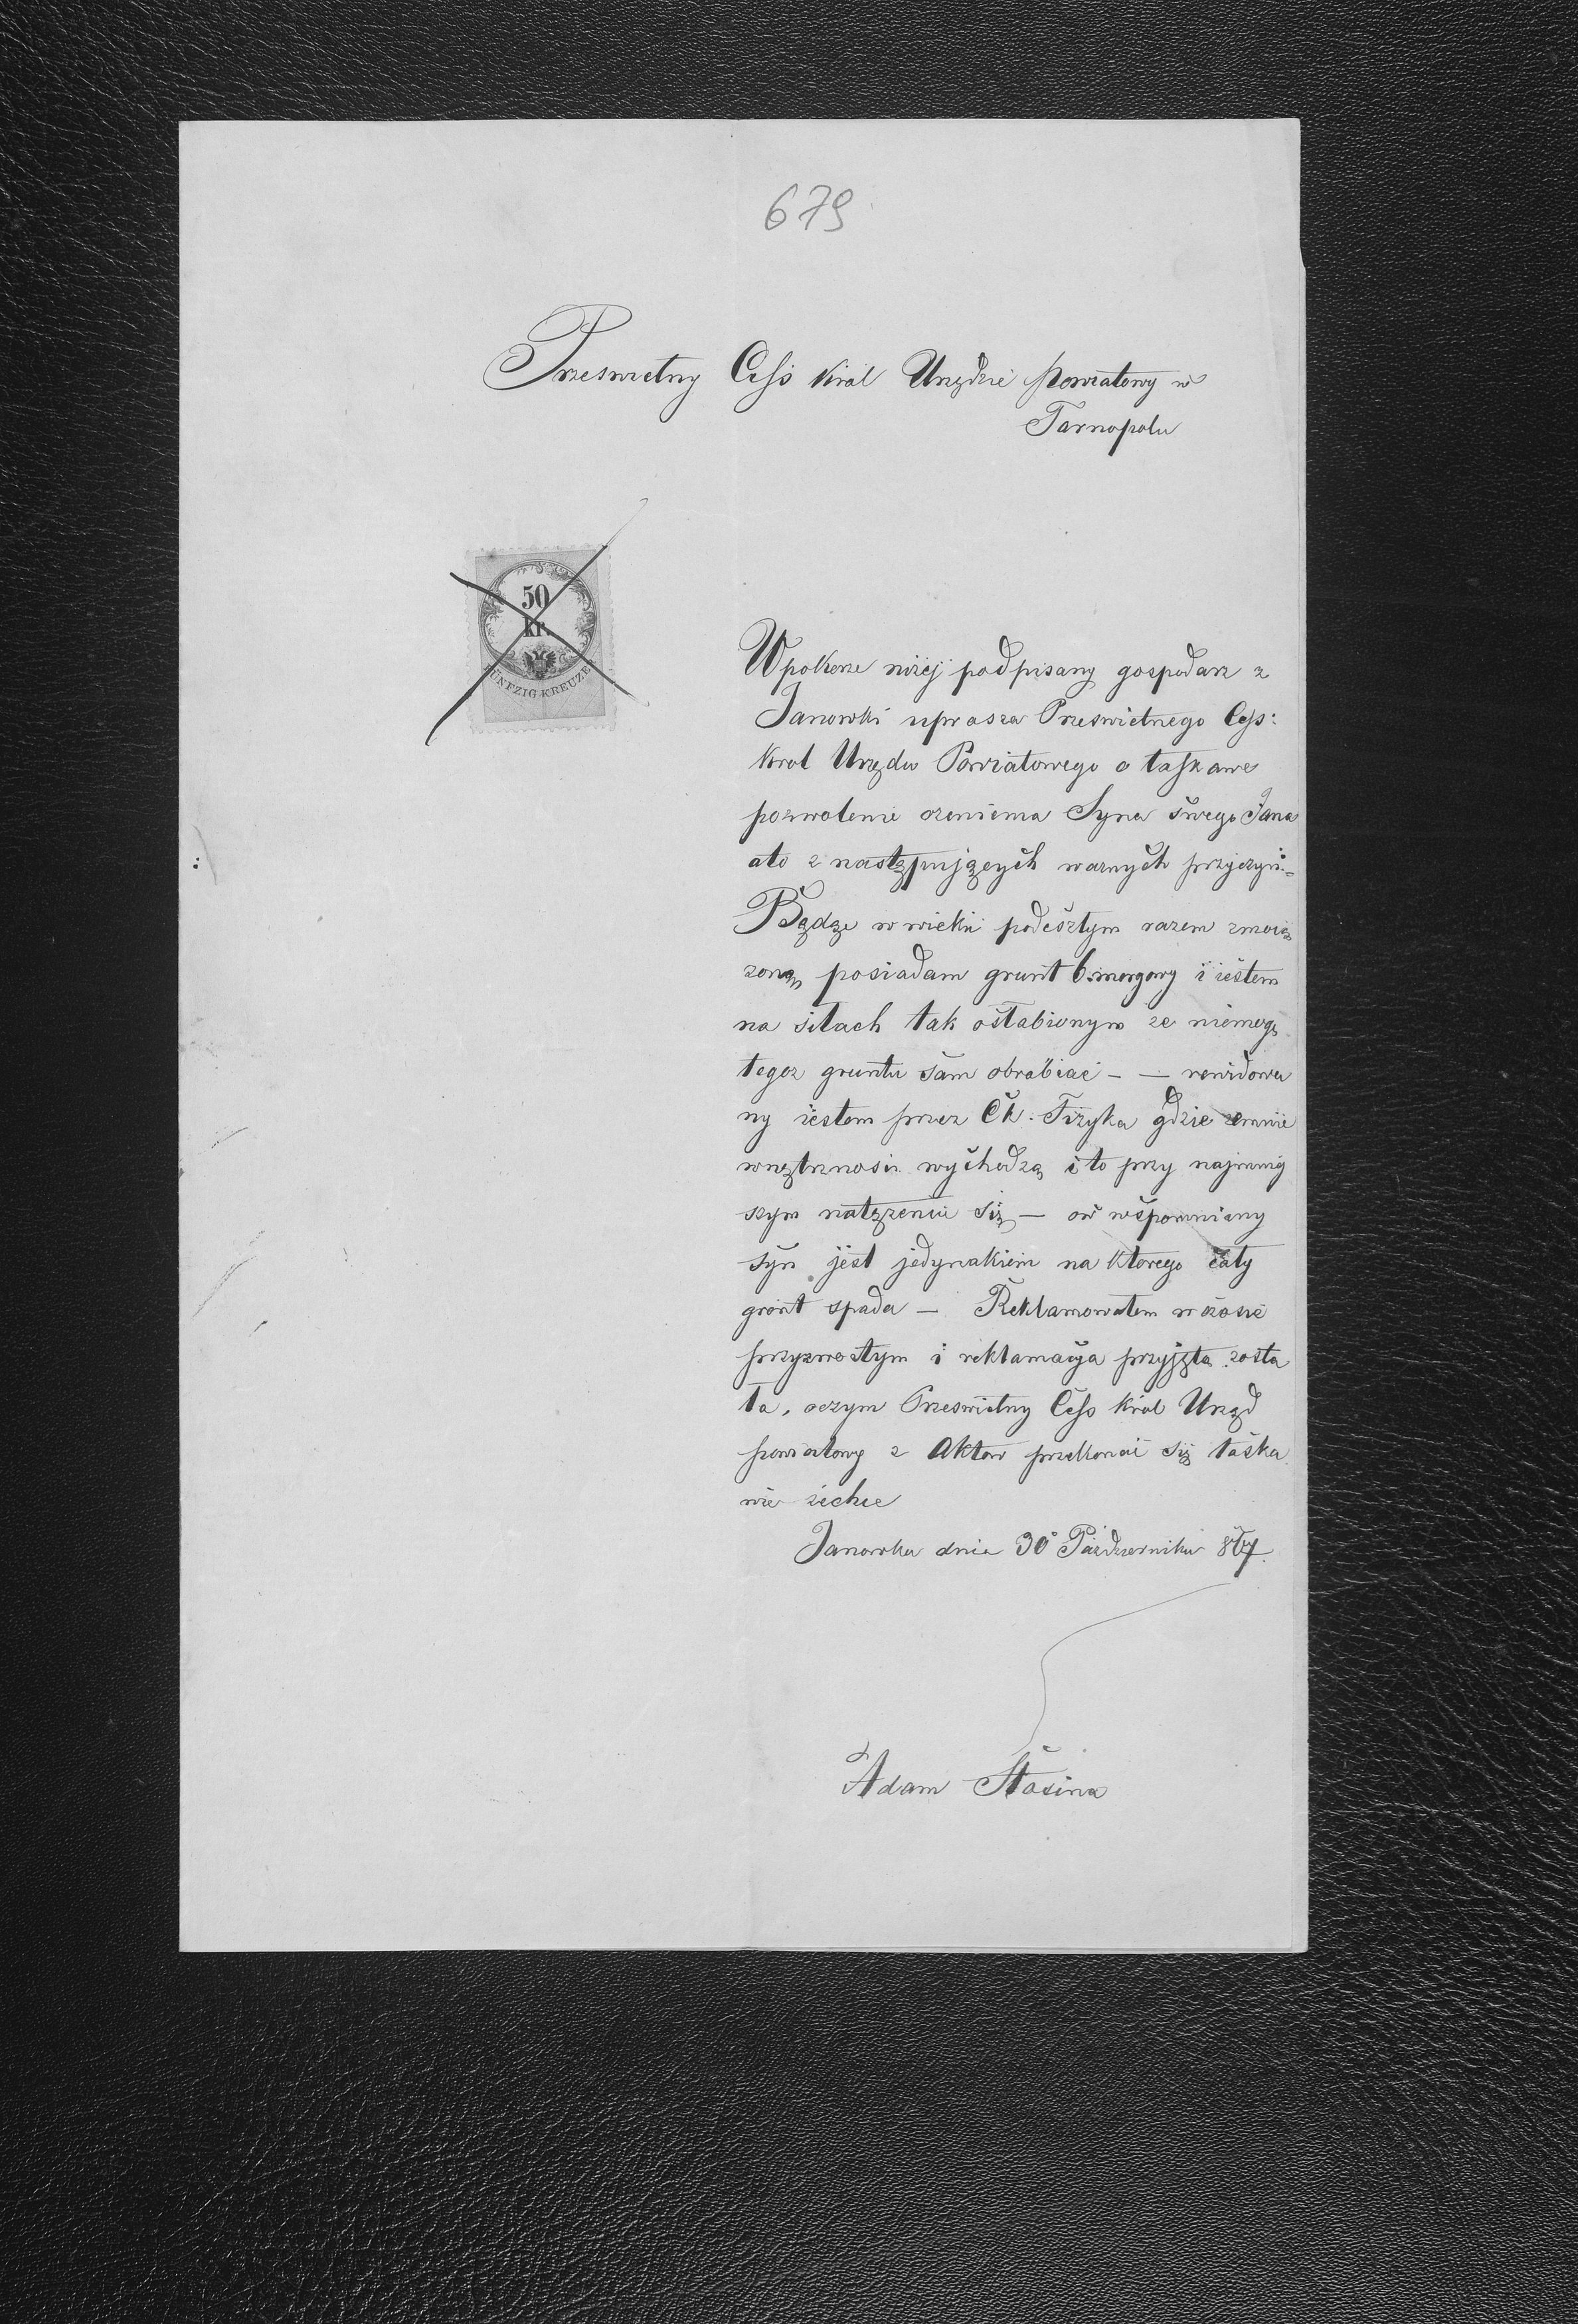 679
Przeswietny Cess Król Urzędzie Powiatowy w
Tarnopolu
50
kr.
FÜNFZIG KREUZER
W pokorze niżej podpisany gospodarz z
Janowki uprasza Przeswietnego Cess:
Krol Urzędu Powiatowego o łaskawe
pozwolenie ożenienia Syna swego Jana
ato z następujących warnych przyczyn:=
Będąc w wieku podeszłym razem zmoią
zoną, posiadam grunt 6 morgowy i iestem
na siłach tak osłabionym ze niemogę
tegoz gruntu sam obrabiać - — rewidowa
ny iestem przez Ck. Fizyka gdzie zemnie
wnętrznosci wychodzą i to przy najmnię
szym natężeniu się — ów wspomniany
syn jest jedynakiem na ktorego cały
gront spada — Reklamowałem w czasie
przyzwoitym i reklamacya przyjęta zosta
ła, oczym Przeswietny Cess Król Urząd
powiatowy z Aktow przekonać się łaska
wie zichce
Janowka dnia 30 Pazdziernika
Adam Stasina